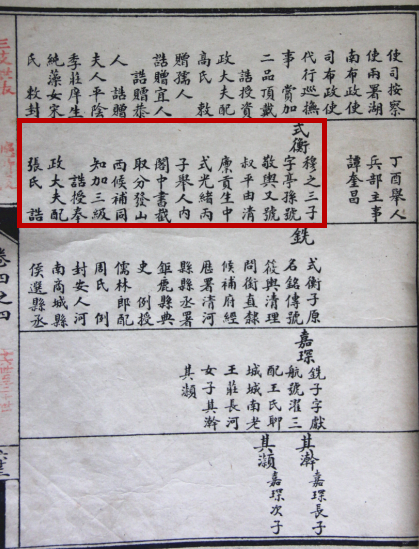 使司按察
使兩署湖
南布政使
司布政使
代行巡撫
事賞加
二品頂戴
誥授資
政大夫配
高氏 敕
贈孺人
誥贈宜人
誥贈恭
人 誥贈
夫人平陰
季莊庠生
純藻女宋
氏 敕封
丁酉舉人
兵部主事
譚奎昌
式衡
穆之三子
字亭孫號
敬輿又號
叔平由清
廩貢生中
式光緒丙
子舉人內
閣中書截
取分發山
西候補同
知加三級
誥授奉
政大夫配
張氏 誥
銑
式衡子原
名銘傳號
筱輿清理
問銜直隸
候補府經
歷署清河
縣縣丞署
鉅鹿縣典
史 例授
儒林郎配
周氏 例
封安人河
南尚城縣
侯選縣丞
嘉琛
銑子字獻
航號濯三
配王氏聊
城城南老
王莊長河
女子其瀚
其灝
其瀚
嘉琛長子
其灝
嘉琛次子
卷四之四